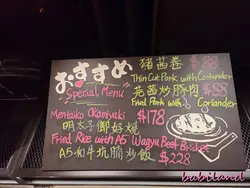 おすすめ
Special Menu
豬芫卷 $88
Thin Cut Pork with Coriander
芫茜炒豚肉 $88
Fried Pork with Coriander
Mentaiko Okonomiyaki $178
明太子御好燒
Fried Rice with A5 Wagyu Beef Brisket
A5和牛坑腩炒飯 $228
babiland